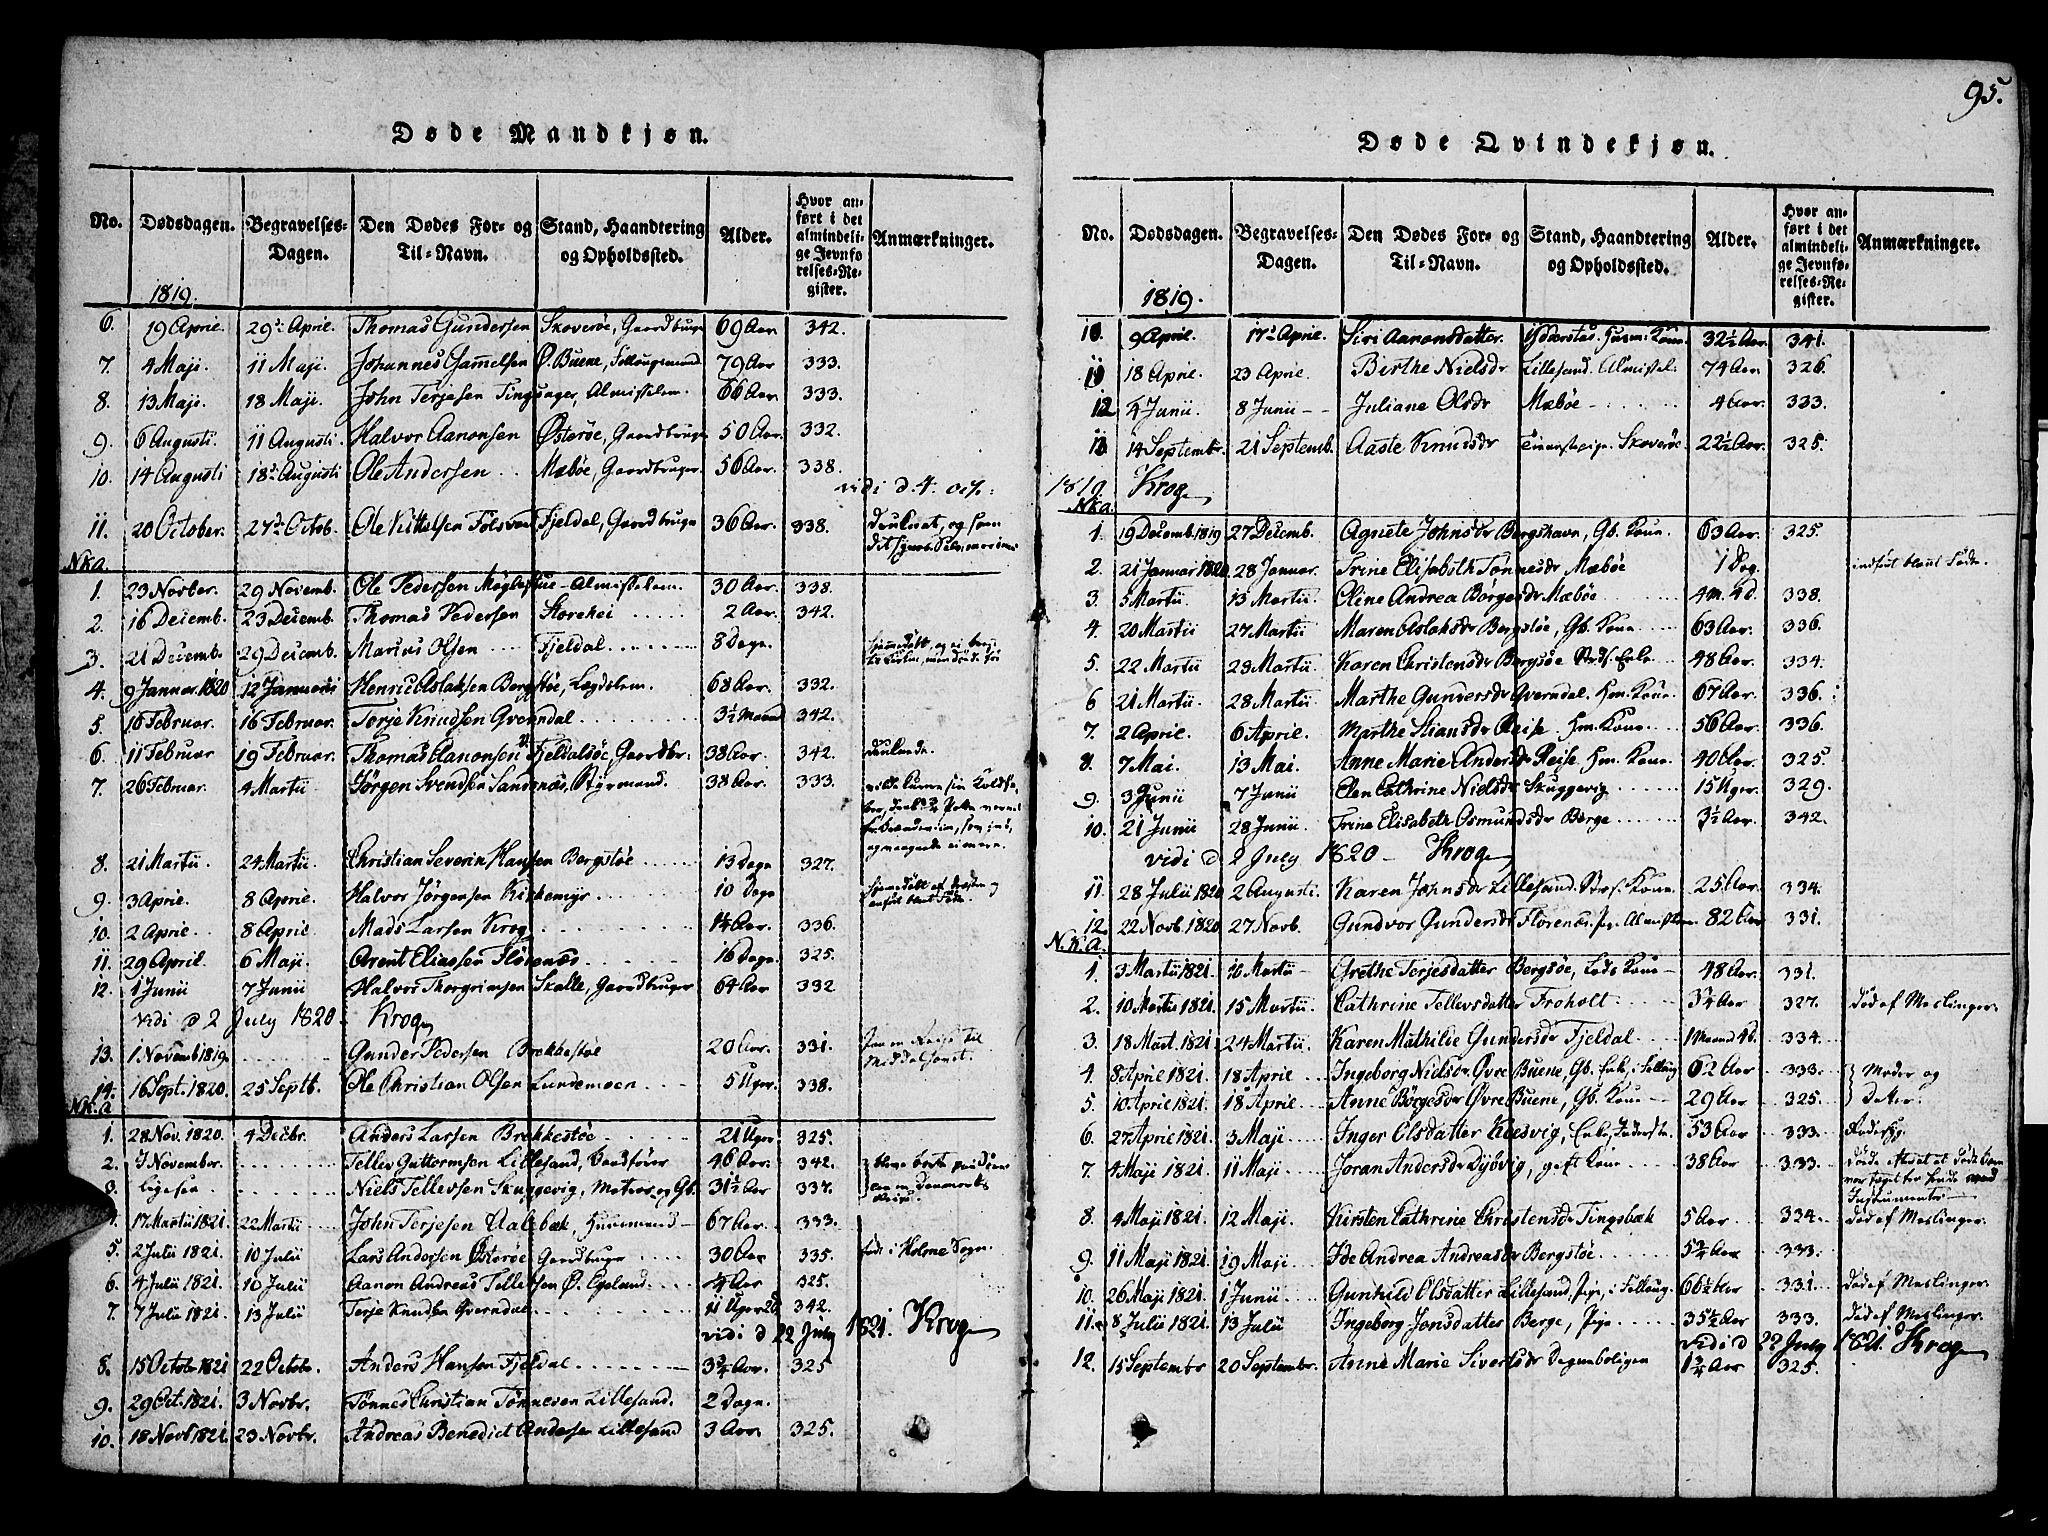 95.
Døde Mandkjøn.
No. Dødsdagen. Begravelses-Dagen. Den Dødes For- og Til-Navn. Stand, Haandtering og Opholdssted. Alder. Hvor anført i det almindelige Jevnførelses-Register. Anmærkninger.
1819.
6. 19 April. 29de April. Thomas Gundersen Skoverøe, Gaardbruger 69 Aar 342.
7. 4 Maji. 11 Maji. Johannes Gamelsen Ø. Buene, 79 Aar 333.
8. 13 Maji. 18 Maji. John Terjesen Tingsager, Almisselem. 66 Aar. 333.
9. 6 Augusti 11 Augusti. Halvor Aanonsen Østerøe, Gaardbruger 50 Aar. 332.
10. 14 Augusti 18de Augusti Ole Andersen Mæbøe, Gaardbruger. 56 Aar. 338.
vidi d. 4. Oct.
11. 20 October. 27de Octob. Ole Kittelsen Fjeldal, Gaardbruger 36 Aar. 338. druknet, og
Nka.
1. 23 Novbr. 29 Novemb. Ole Pedersen Møglestue Almisselem. 30 Aar 338.
2. 16 Decemb. 23 Decemb. Thomas Pedersen Storehei 2 Aar. 342.
3. 21 Decemb. 29 Decemb. Marius Olsen Fjeldal 8 Dage.
4. 9 Januar. 1820 12 Januarii Henric Aslaksen Bergstøe, Lægdslem. 68 Aar. 332.
5. 16 Februar. 16 Februar. Terje Knudsen Qverndal 3½ Maaned 342.
6. 11 Februar 19 Februar. Thomas Aanonsen Fjeldalsøe, Gaardbr. 38 Aar. 342. druknede.
7. 26 Februar. 4 Martii Jørgen Svendsen Sandenæs, Styrmand. 38 Aar 333.
8. 21 Martii 24 Martii. Christian Severin Hansen Bergstøe 13 Dage 327.
9. 3 April. 8 April. Halvor Jørgensen Kirkemyr 10 Dage
10. 2 April. 8 April. Mads Larsen Krog 14 Aar. 336.
11. 29 April. 6 Maji. Arent Eliassen Florenæs 16 Dage. 325.
12. 1 Junii 7 Junii Halvor Thorgrimsen Skalle, Gaardbruger 64 Aar 332
vidi d 2 July 1820. Krog
13. 1. Novemb 1819. Gunder Pedersen Brekkestøe 20 Aar. 331.
14. 16 Sept. 1820. 25 Septb. Ole Christian Olsen Lundemoen 5 Uger. 338.
Nk.a
1. 28 Nov. 1820. 4 Decbr. Anders Larsen Brekkestøe 21 Uger 325.
2. 7 November. Tellev Guttormsen Lillesand, 46 Aar. 342.
3. ligesaa Niels Tellevsen Skuggevig, Matros og Gb. 31½ Aar 337.
4. 17 Martii 1821. 22 Martii John Terjesen Huusmand 67 Aar 333.
5. 2 Julii 1821. 10 Julii Lars Andersen Østerøe Gaardbruger 30 Aar 335. født i Holme Sogn.
6. 4 Julii 1821. 10 Julii Aanon Andreas Tellefsen Ø. Egeland ¼ Aar 325.
7. 7 Julii 1821. 13 Julii Terje Knudsen Qverndal 342.
vidi d 22 July 1821. Krog
8. 15 Octobr 1821 22 Octobr. Anders Hansen Fjeldal 3¾ Aar. 325
9. 29 Oct. 1821. 3 Novbr. Tønnes Christian Tønnesen Lillesand. 2 Dage.
10. 18 Novb 1821. 23 Novbr. Andreas Benedict Andersen Lillesand 3 Aar 325.
Døde Qvindekjøn.
No. Dødsdagen. Begravelses-Dagen. Den Dødes For- og Til-Navn. Stand, Haandtering og Opholdssted. Alder. Hvor anført i det almindelige Jevnførelses-Register. Anmærkninger.
1819.
10. 9 April. 17de April. Siri Aanonsdatter 32½ Aar. 341.
11 18 April. 23 April. Birthe Nielsdr Lillesand. Almissel. 74 Aar 326.
12 4 Junii 8 Junii Juliane Olsdr Mæbøe 4 Aar. 333.
13 14 Septembr. 21 Septemb. Aaste Knudsdr Tjenestepige Skoverøe 22½ Aar. 325.
1819. Krog
Nka.
1. 19 Decemb. 1819 27 Decemb. Agnete Johnsdr Bergshavn, Gb. Kone. 63 Aar. 325.
2. 21 Januar 1820 28 Januar. Trine Elisabeth Tønnesdr Mæbøe 1 Dag.
3. 5 Martii. 13 Martii. Eline Andrea Børgesdr Mæbøe 4 m. 4 d. 338.
4. 20 Martii 27 Martii Maren Aslaksdr Bergstøe, Gb. Kone 63 Aar. 336.
5. 22 Martii. 29 Martii. Karen Christensdr Bergsøe Enke 48 Aar. 334.
6 21 Martii 28 Martii. Marthe Gundersdr Qverndal. Hm. Kone 67 Aar 336.
7. 2 April. 6 April. Marthe Stiansdr Reise Hm. Kone 56 Aar 336.
8. 7 Mai. 13 Mai. Anne Marie Andersdr Reise, Hm. Kone. 40 Aar. 325.
9. 3 Junii 7 Junii Elen Cathrine Nielsdr Skuggevig 15 Uger. 329.
10. 21 Junii 28 Junii. Trine Elisabeth Osmundsdr Berge 3½ Aar. 342.
vidi d 2 July 1820 Krog
11. 28 Julii 1820 2 Augusti. Karen Johnsdr Lillesand. Kone. 25 Aar. 334.
12. 22 Novb. 1820 27 Novb. Gundvor Gundersdr Florenæs, Almisselem 82 Aar 331.
N.K.A.
1. 3 Martii 1821. 10 Martii Grethe Terjesdatter Bergsøe, Lods Kone 48 Aar. 331.
2. 10 Martii 1821. 15 Martii Cathrine Tellevsdatter Froholt 3¾ Aar 327. Død af Meslinger.
3. 18 Mart. 1821 24 Martii. Karen Mathilie Gundersdr Fjeldal 334.
4. 8 April 1821. 18 April Ingeborg Nielsdr Øvre Buene, Gb. Enke, 62 Aar 333. } Moder og
5. 10 April 1821. 18 April Anne Børgesdr Øvre Buene, Gb. Kone 29 Aar 325. } Datter.
6. 27 April 1821. 3 Maji Inger Olsdatter Enke, 53 Aar 333.
7. 4 Maji 1821. 11 Maji Joran Andersdr Dyvig, gift Kone 38 Aar 333.
8. 4 Maji 1821. 12 Maji. Kirsten Cathrine Christensdr Tingsbæk 5 Aar 334. Død af Meslinger.
9. 11 Maji 1821. 19 Maji. Ide Andrea Andreasdr Bergstøe 5¾ Aar 333.
10. 26 Maji 1821. 1 Junii. Gunhild Olsdatter Lillesand, Pige, 66½ Aar 331. Død af Meslinger.
11. 8 Julii 1821. 13 Julii Ingeborg Jonsdatter Berge, Pige 35½ Aar 333. Død af Meslinger.
vidi d 22 July 1821. Krog
12. 15 Septembr 20 Septembr. Anne Marie Siversdr Degneboligen 1¾ Aar 325.